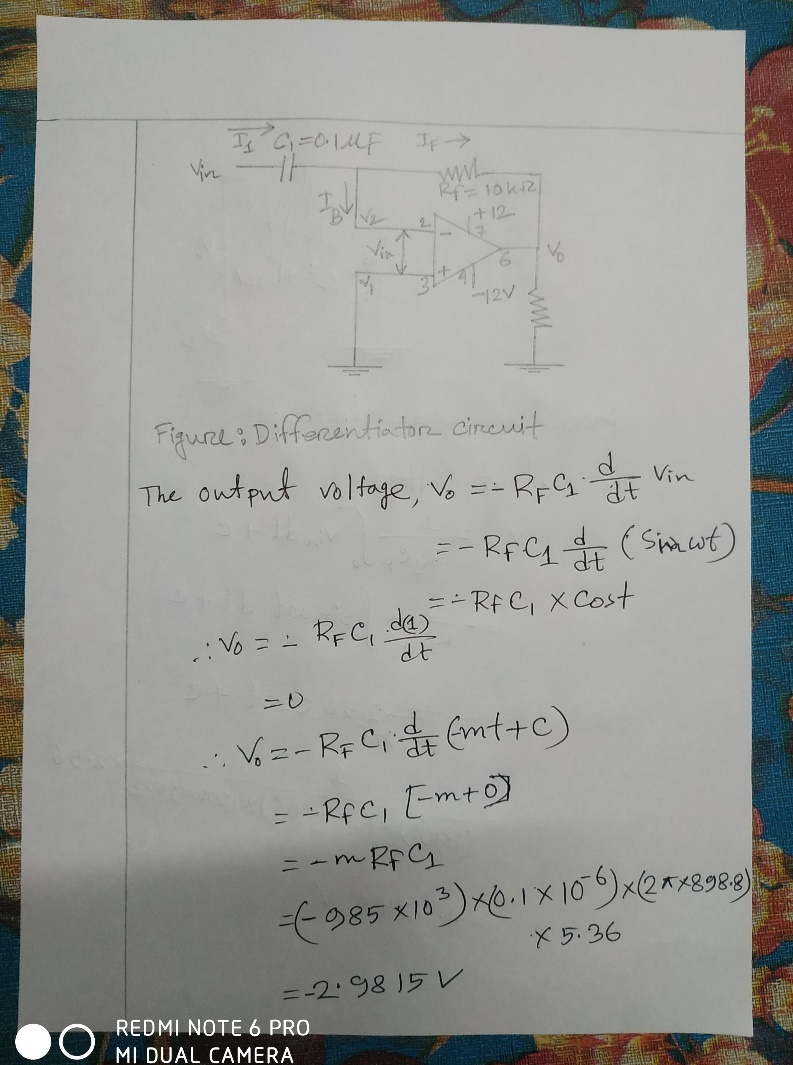 I₁ C₁=0.1μF IF →
Vin
RF = 10kΩ
IB V2 2 − +12
7
Vin 6 Vo
V1 3 + 4 −12V
Figure: Differentiator circuit
The output voltage, Vo = - RF C1 · d/dt Vin
= - RF C1 d/dt (Sin ωt)
= - RF C1 × Cost
∴ Vo = - RF C1 · d(1)/dt
= 0
∴ Vo = - RF C1 · d/dt (-mt+c)
= - RF C1 [-m+0]
= - m RF C1
= (-985 ×10³) × (0.1 × 10⁻⁶) × (2π×898.8)
× 5.36
= -2.9815 V
REDMI NOTE 6 PRO
MI DUAL CAMERA